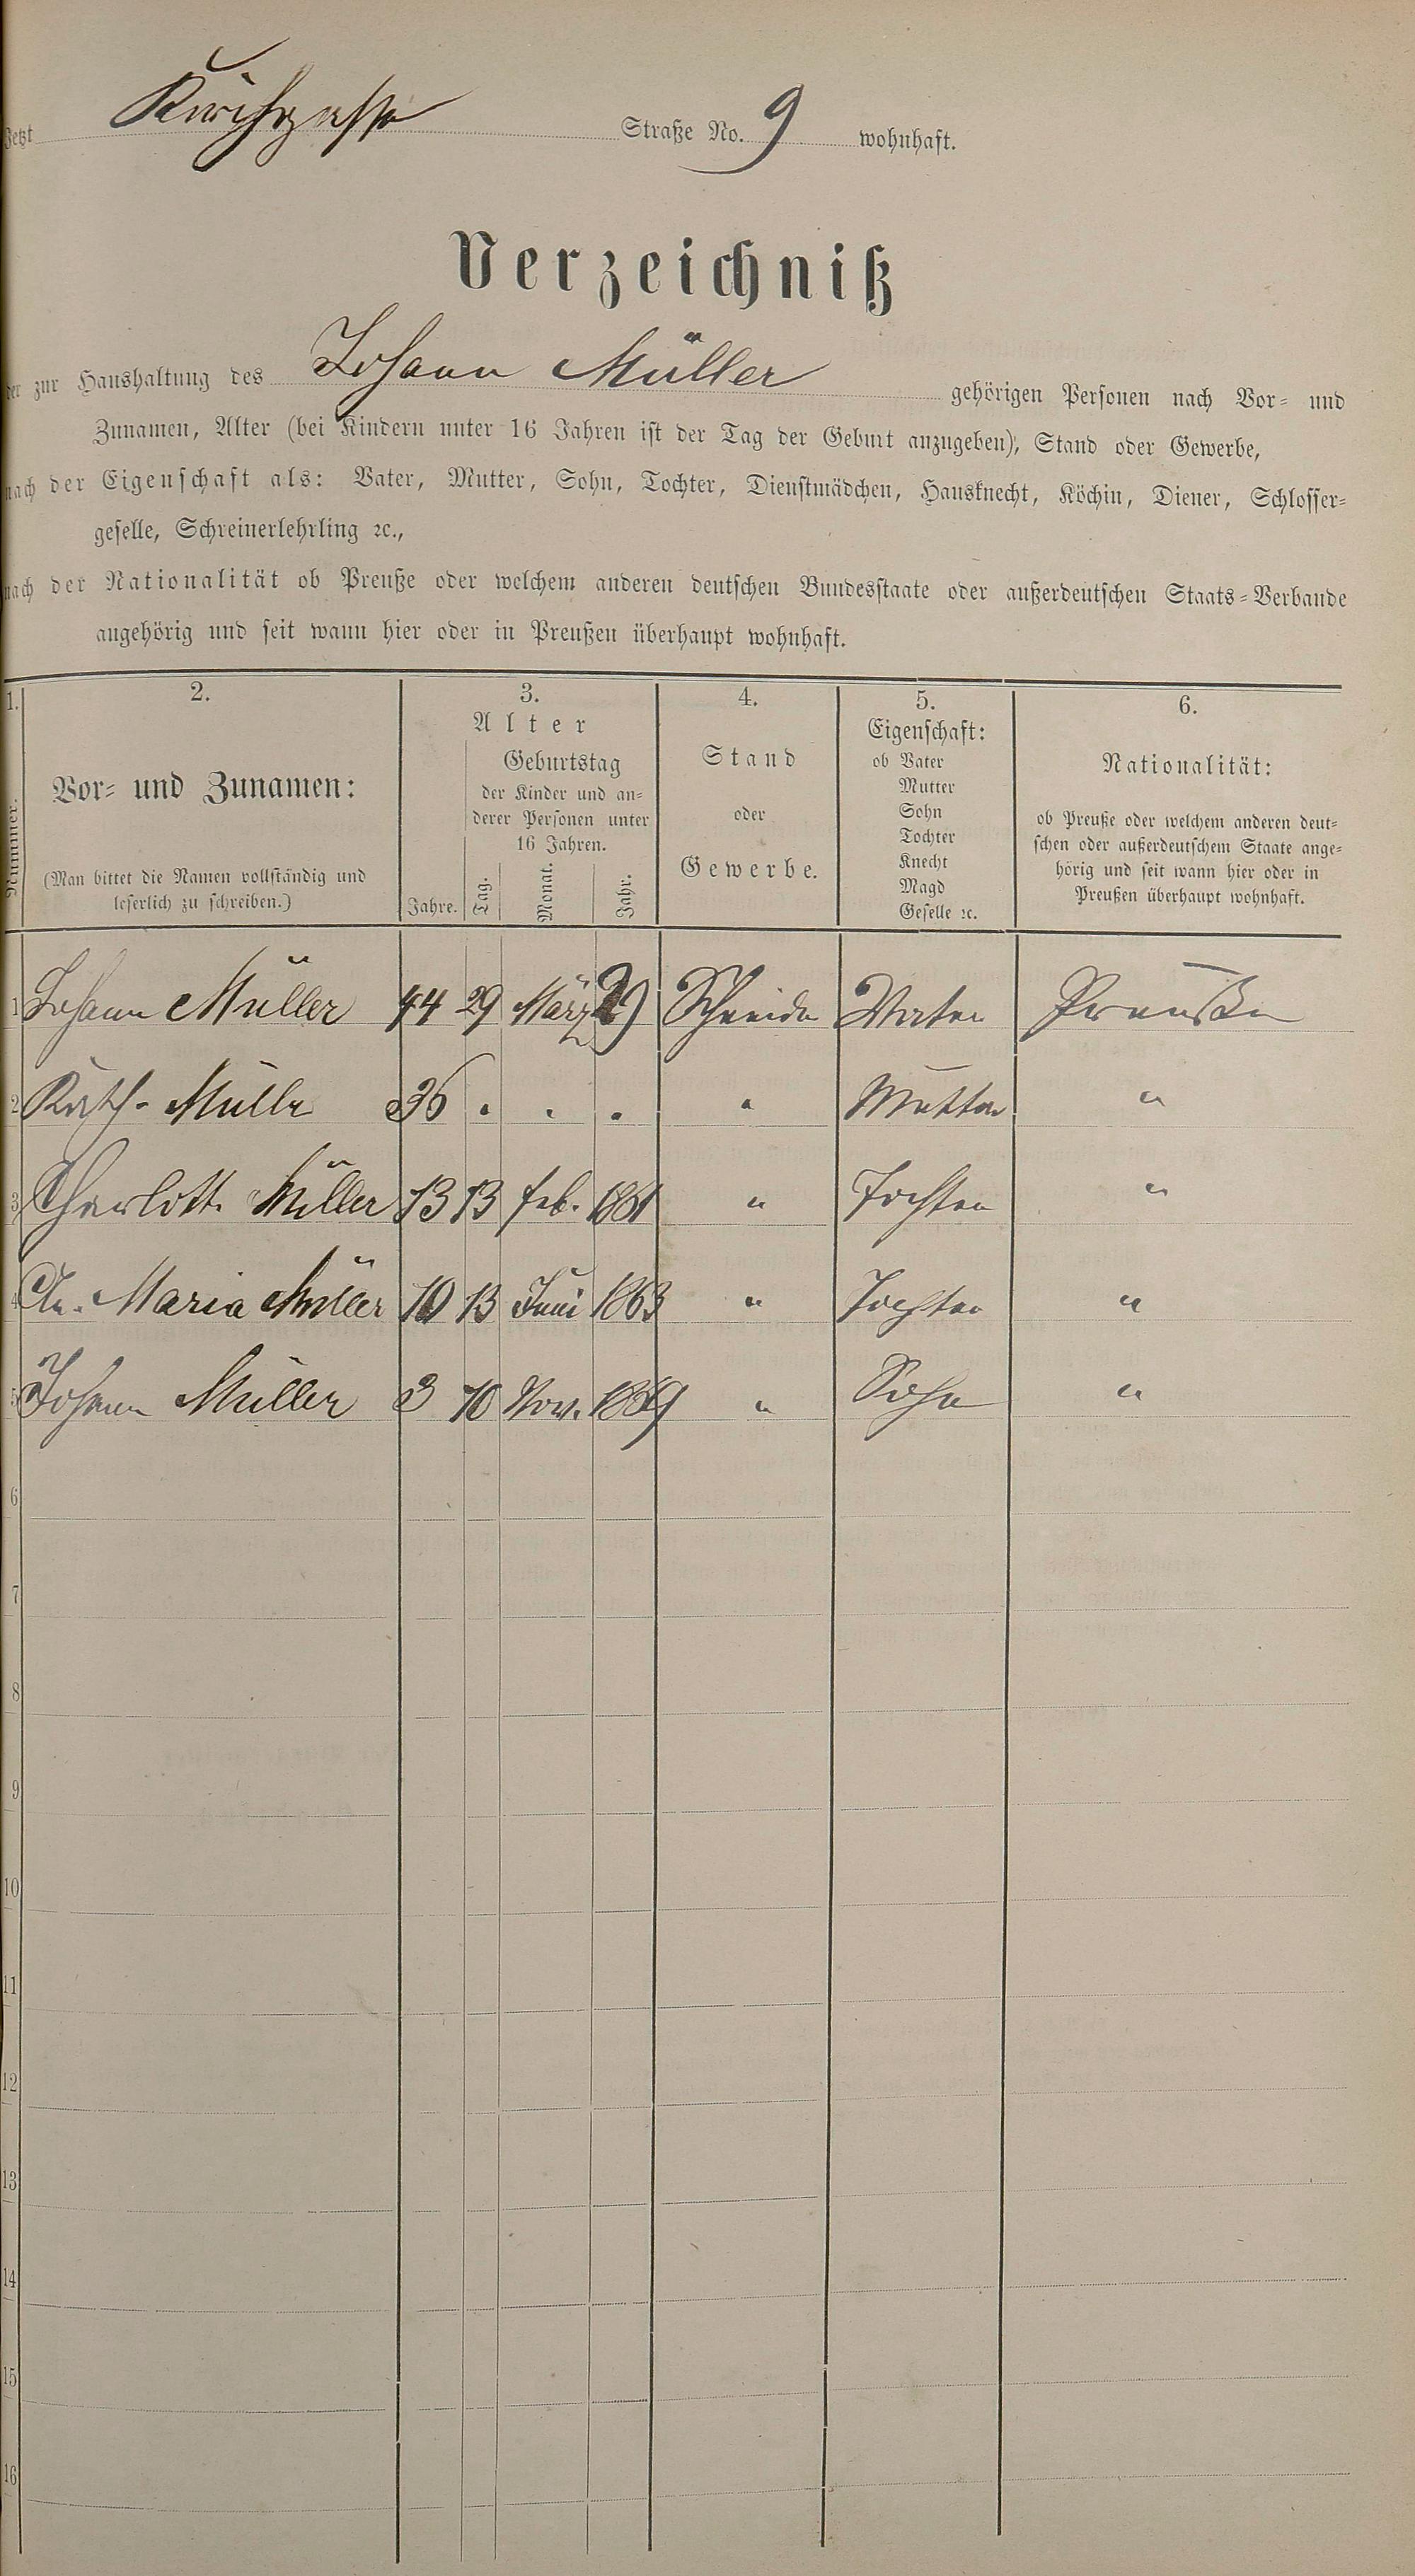 Jetzt Kirchgasse Straße No. 9 wohnhaft.
Verzeichniß
der zur Haushaltung des Johann Müller gehörigen Personen nach Vor- und
Zunamen, Alter (bei Kindern unter 16 Jahren ist der Tag der Geburt anzugeben), Stand oder Gewerbe,
nach der Eigenschaft als: Vater, Mutter, Sohn, Tochter, Dienstmädchen, Hausknecht, Köchin, Diener, Schlosser-
geselle, Schreinerlehrling ꝛc.,
nach der Nationalität ob Preuße oder welchem anderen deutschen Bundesstaate oder außerdeutschen Staats-Verbande
angehörig und seit wann hier oder in Preußen überhaupt wohnhaft.
1.
Nummer.
2.
Vor- und Zunamen:
(Man bittet die Namen vollständig und
leserlich zu schreiben.)
3.
Alter
Geburtstag
der Kinder und an-
derer Personen unter
16 Jahren.
Jahre. Tag. Monat. Jahr.
4.
Stand
oder
Gewerbe.
5.
Eigenschaft:
ob Vater
Mutter
Sohn
Tochter
Knecht
Magd
Geselle ꝛc.
6.
Nationalität:
ob Preuße oder welchem anderen deut-
schen oder außerdeutschem Staate ange-
hörig und seit wann hier oder in
Preußen überhaupt wohnhaft.
1 Johann Müller 44 29 März 29 Schneider Vater Preußen
2 Kath. Müller 36 . . . " Mutter "
3 Charlotte Müller 13 13 Feb. 1861 " Tochter "
4 An. Maria Müller 10 13 Juni 1863 " Tochter "
5 Johann Müller 3 10 Nov. 1869 " Sohn "
6
7
8
9
10
11
12
13
14
15
16